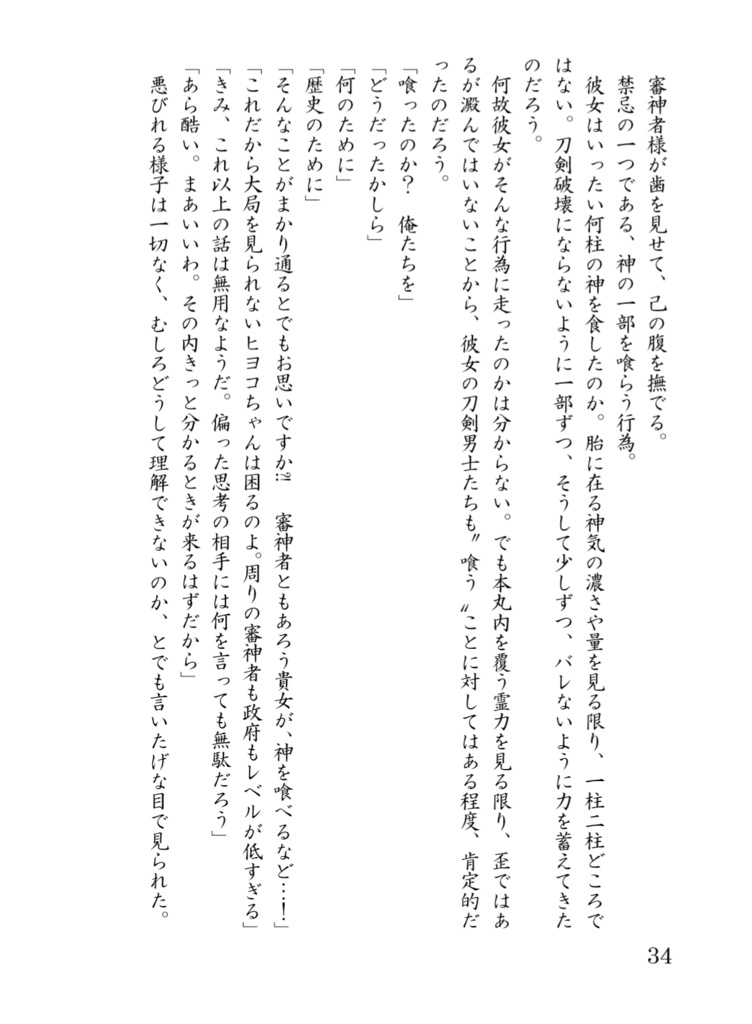 審神者様が歯を見せて、己の腹を撫でる。
禁忌の一つである、神の一部を喰らう行為。
彼女はいったい何柱の神を食したのか。胎に在る神気の濃さや量を見る限り、一柱二柱どころで
はない。刀剣破壊にならないように一部ずつ、そうして少しずつ、バレないように力を蓄えてきた
のだろう。
何故彼女がそんな行為に走ったのかは分からない。でも本丸内を覆う霊力を見る限り、歪ではあ
るが澱んではいないことから、彼女の刀剣男士たちも〝喰う〟ことに対してはある程度、肯定的だ
ったのだろう。
「喰ったのか？　俺たちを」
「どうだったかしら」
「何のために」
「歴史のために」
「そんなことがまかり通るとでもお思いですか⁈　審神者ともあろう貴女が、神を喰べるなど…！」
「これだから大局を見られないヒヨコちゃんは困るのよ。周りの審神者も政府もレベルが低すぎる」
「きみ、これ以上の話は無用なようだ。偏った思考の相手には何を言っても無駄だろう」
「あら酷い。まあいいわ。その内きっと分かるときが来るはずだから」
悪びれる様子は一切なく、むしろどうして理解できないのか、とでも言いたげな目で見られた。
34